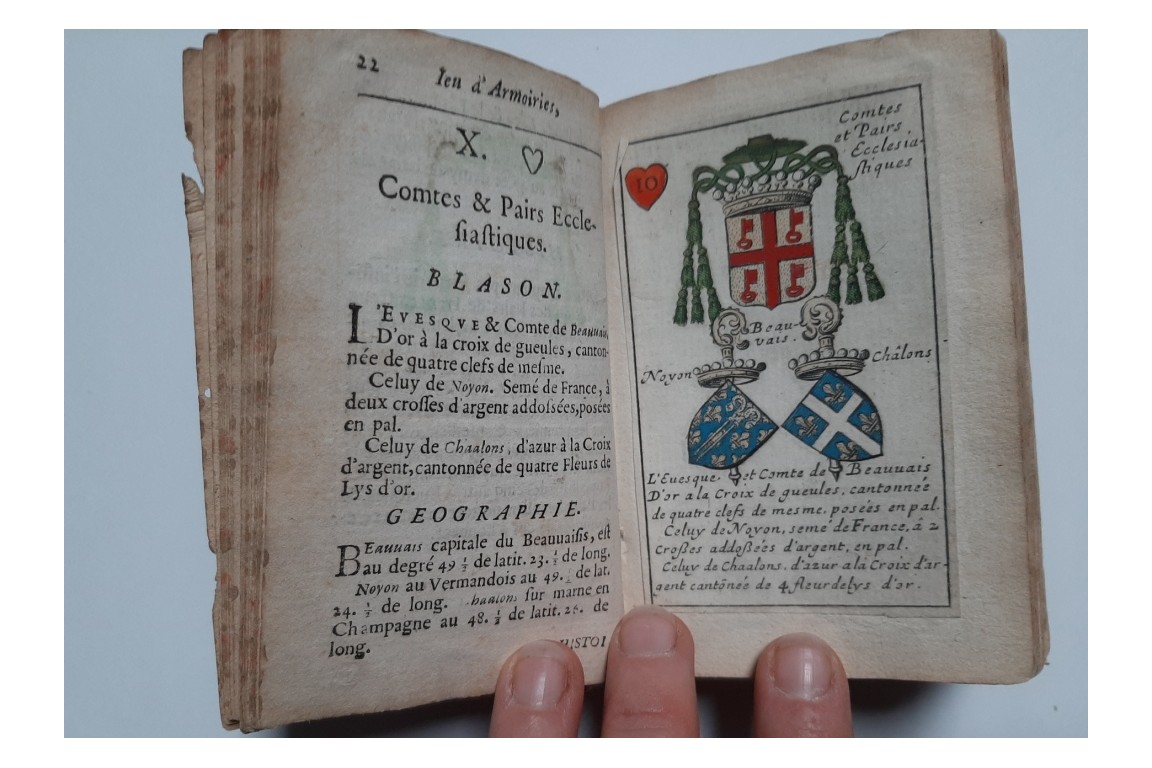 22 Ieu d'Armoiries,
X.
Comtes & Pairs Eccle-
siastiques.
BLASON.
L'EVESQVE & Comte de Beauuais,
D'or à la croix de gueules, canton-
née de quatre clefs de mesme.
Celuy de Noyon. Semé de France, à
deux crosses d'argent addossées, posées
en pal.
Celuy de Chaalons, d'azur à la Croix
d'argent, cantonnée de quatre Fleurs de
Lys d'or.
GEOGRAPHIE.
BEauuais capitale du Beauuaisis, est
au degré 49 ½ de latit. 23. ½ de long.
Noyon au Vermandois au 49. de lat.
24. ½ de long. sur marne en
Champagne au 48. ½ de latit. 26. de
long.
HISTOI
Comtes
et Pairs
Ecclesia-
stiques
10
Beau-
vais.
Noyon
Châlons
L'Euesque et Comte de Beauuais
D'or a la Croix de gueules, cantonnée
de quatre clefs de mesme, posées en pal.
Celuy de Noyon, semé de France, â 2
Croßes addoßées d'argent, en pal.
Celuy de Chaalons, d'azur a la Croix d'ar-
gent cantõnée de 4 fleur de lys d'or.